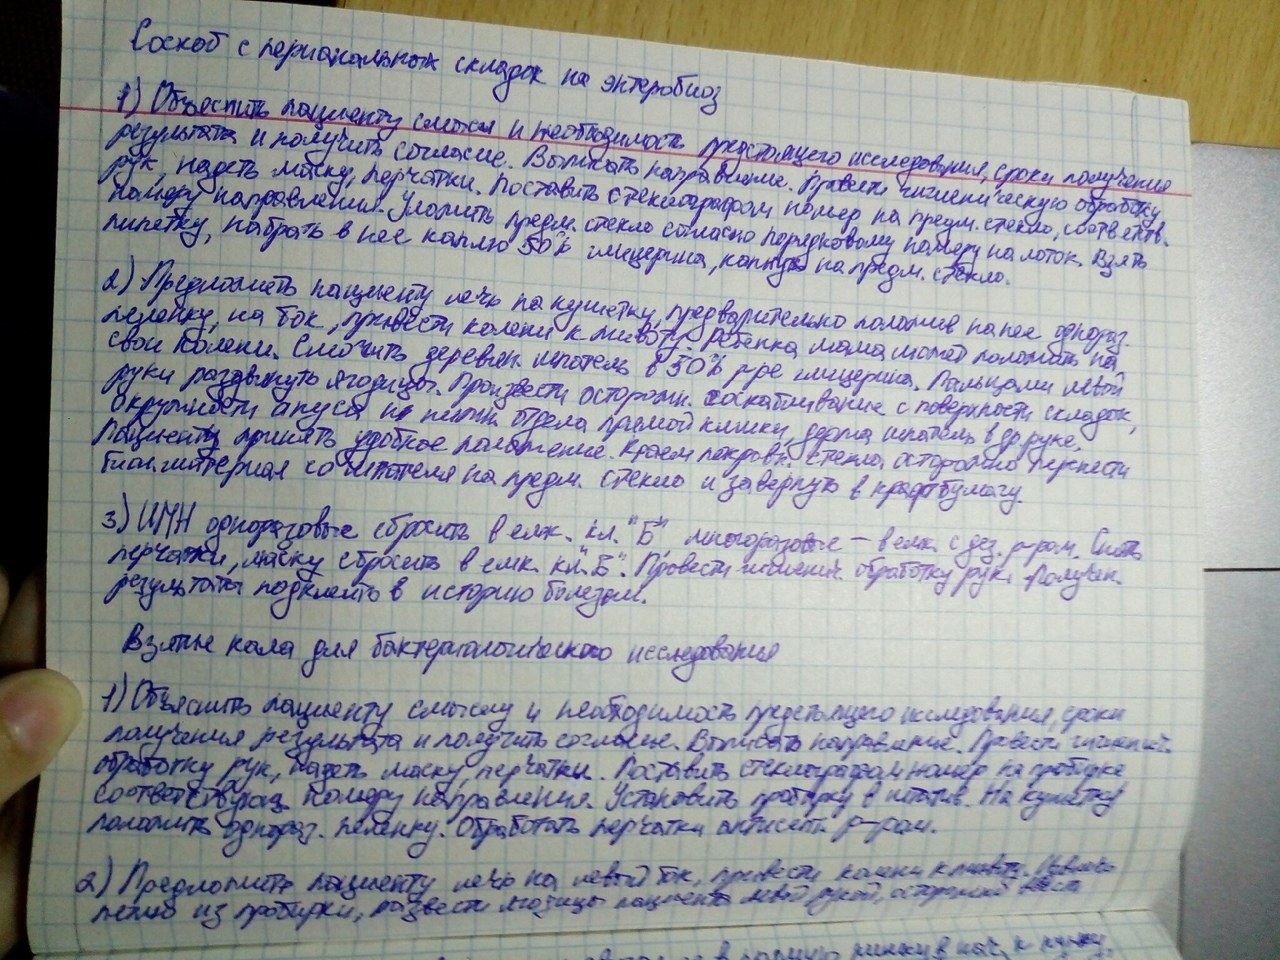 Соскоб с перианальных складок на энтеробиоз
1) Объяснить пациенту смысл и необходимость предстоящего исследования, сроки получения
результата и получить согласие. Выписать направление. Провести гигиеническую обработку
рук, надеть маску, перчатки. Поставить стеклографом номер на предм. стекло, соответств.
номеру направления. Уложить предм. стекло согласно порядковому номеру на лоток. Взять
пипетку, набрать в нее каплю 50% глицерина, капнуть на предм. стекло.
2) Предложить пациенту лечь на кушетку, предварительно положив на нее однораз.
пеленку, на бок, привести колени к животу. Ребенка мама может положить на
свои колени. Смочить деревян. шпатель в 50% р-ре глицерина. Пальцами левой
руки раздвинуть ягодицы. Произвести осторожн. соскабливание с поверхности складок,
окружности ануса и нижн. отдела прямой кишки, держа шпатель в др. руке,
Пациенту принять удобное положение. Краем покровн. стекла осторожно перенести
биол. материал со шпателя на предм. стекло и завернуть в крафт бумагу.
3) ИМН одноразовые сбросить в емк. кл. "Б" многоразовые – в емк. с дез. р-ром. Снять
перчатки, маску сбросить в емк. кл. "Б". Провести гигиенич. обработку рук. Получен.
результаты подклеить в историю болезни.
Взятие кала для бактериологического исследования
1) Объяснить пациенту смысл и необходимость предстоящего исследования, сроки
получения результата и получить согласие. Выписать направление. Провести гигиенич.
обработку рук, надеть маску, перчатки. Поставить стеклографом номер на пробирке
соответствующ. номеру направления. Установить пробирку в штатив. На кушетку
положить однораз. пеленку. Обработать перчатки антисепт. р-ром.
2) Предложить пациенту лечь на левый бок, привести колени к животу. Извлечь
петлю из пробирки, развести ягодицы пациента левой рукой, осторожно ввести
в прямую кишку в нач. к пупку.